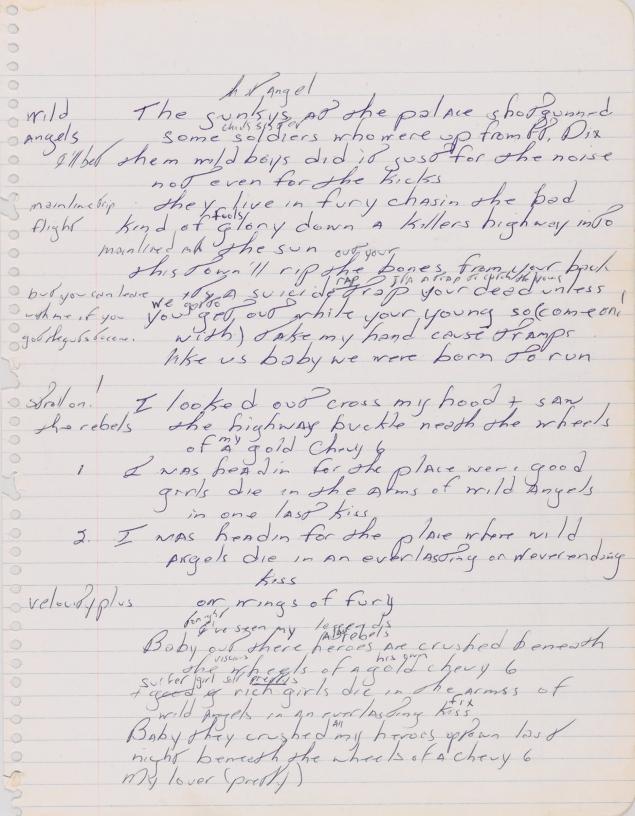 Wild Angel
Wild The junkys at the palace shotgunned
Angels some soldiers who were up from Ft. Dix
I'll bet them wild boys did it just for the noise
not even for the kicks
mainline trip they live in fury chasin the bad
flight kind of glory down a killers highway into
mainlined the sun
out your
this town'll rip the bones from your back
rap its a rap
but you can leave its a suicide trap your dead unless
we gotta
with me if you you get out while your young so (come on
got the guts with) take my hand cause tramps
like us baby we were born to run
stroll on! I looked out cross my hood + saw
the rebels the highway buckle neath the wheels
my
of a gold Chevy 6
1. I was headin for the place were good
girls die in the arms of wild Angels
in one last kiss
2. I was headin for the place where wild
Angels die in an everlasting or neverending
kiss
velocity plus on wings of fury
tonight I've seen my legends
rebels
Baby out there heroes are crushed beneath
his own
the wheels of a gold chevy 6
+ good rich girls die in the arms of
fix
wild Angels in an everlasting kiss
all
Baby they crushed my heroes uptown last
night beneath the wheels of a Chevy 6
my lover (pretty)